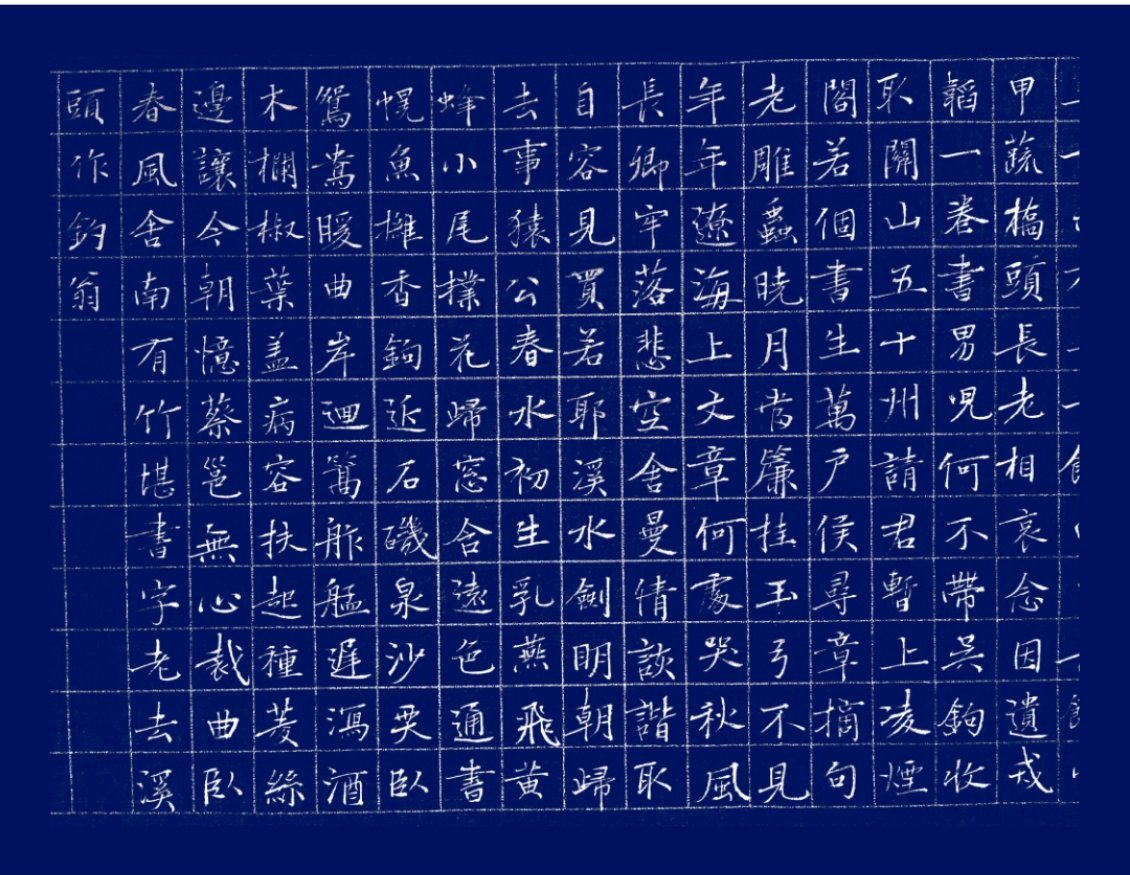 甲蔬橋頭長老相哀念因遺戎
韜一卷書男兒何不帶吳鉤收
取關山五十州請君暫上凌煙
閣若個書生萬戶侯尋章摘句
老雕蟲曉月當簾挂玉弓不見
年年遼海上文章何處哭秋風
長卿牢落悲空舍曼倩詼諧取
自容見買若耶溪水劍明朝歸
去事猿公春水初生乳燕飛黃
蜂小尾撲花歸窗含遠色通書
幌魚擁香鉤近石磯泉沙耎臥
鴛鴦暖曲岸迴篙舴艋遲瀉酒
木欄椒葉蓋病容扶起種菱絲
邊讓今朝憶蔡邕無心裁曲臥
春風舍南有竹堪書字老去溪
頭作釣翁